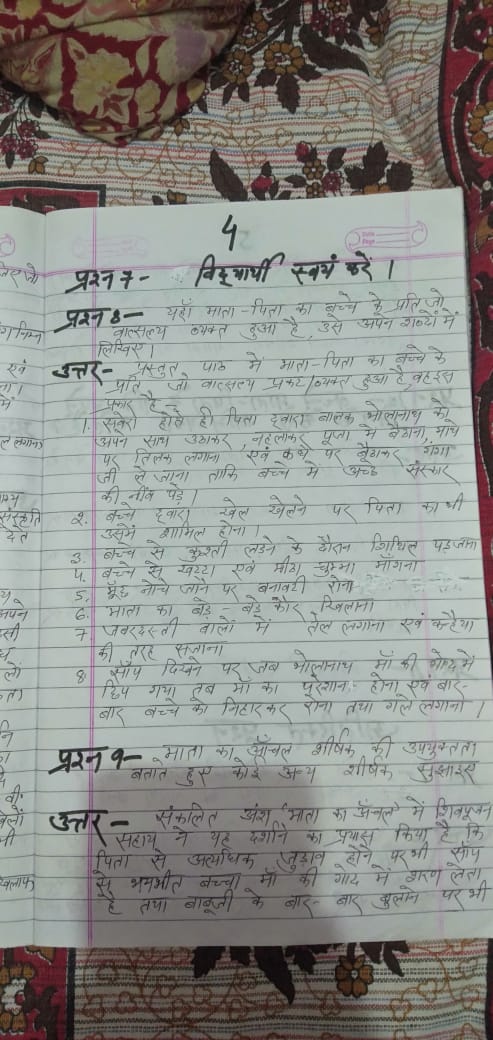 4
प्रश्न 7- विद्यार्थी स्वयं करें।
प्रश्न 8- यहाँ माता-पिता का बच्चे के प्रति जो
वात्सल्य व्यक्त हुआ है, उसे अपने शब्दों में
लिखिए।
उत्तर- प्रस्तुत पाठ में माता-पिता का बच्चे के
प्रति जो वात्सल्य प्रकट/व्यक्त हुआ है, वह इस
प्रकार है-
1. सवेरा होते ही पिता द्वारा बालक भोलानाथ को
अपने साथ उठाकर, नहलाकर पूजा में बैठाना, माथे
पर तिलक लगाना एवं कंधे पर बैठाकर गंगा
जी ले जाना ताकि बच्चे में अच्छे संस्कार
की नींव पड़े।
2. बच्चे द्वारा खेल खेलने पर पिता का भी
उसमें शामिल होना।
3. बच्चे से कुश्ती लड़ने के दौरान शिथिल पड़जाना
4. बच्चे से खट्टा एवं मीठा चुम्मा माँगना
5. मूँछ नोचे जाने पर बनावटी रोना
6. माता का बड़े-बड़े कौर खिलाना
7. जबरदस्ती बालों में तेल लगाना एवं कन्हैया
की तरह सजाना
8. साँप दिखने पर जब भोलानाथ माँ की गोद में
छिप गया तब माँ का परेशान होना एवं बार-
बार बच्चे को निहारकर रोना तथा गले लगाना।
प्रश्न 9- माता का आँचल शीर्षक की उपयुक्तता
बताते हुए कोई अन्य शीर्षक सुझाइए
उत्तर- संकलित अंश 'माता का आँचल' में शिवपूजन
सहाय ने यह दर्शाने का प्रयास किया है कि
पिता से अत्यधिक जुड़ाव होने पर भी साँप
से भयभीत बच्चा माँ की गोद में शरण लेता
है तथा बाबूजी के बार-बार बुलाने पर भी